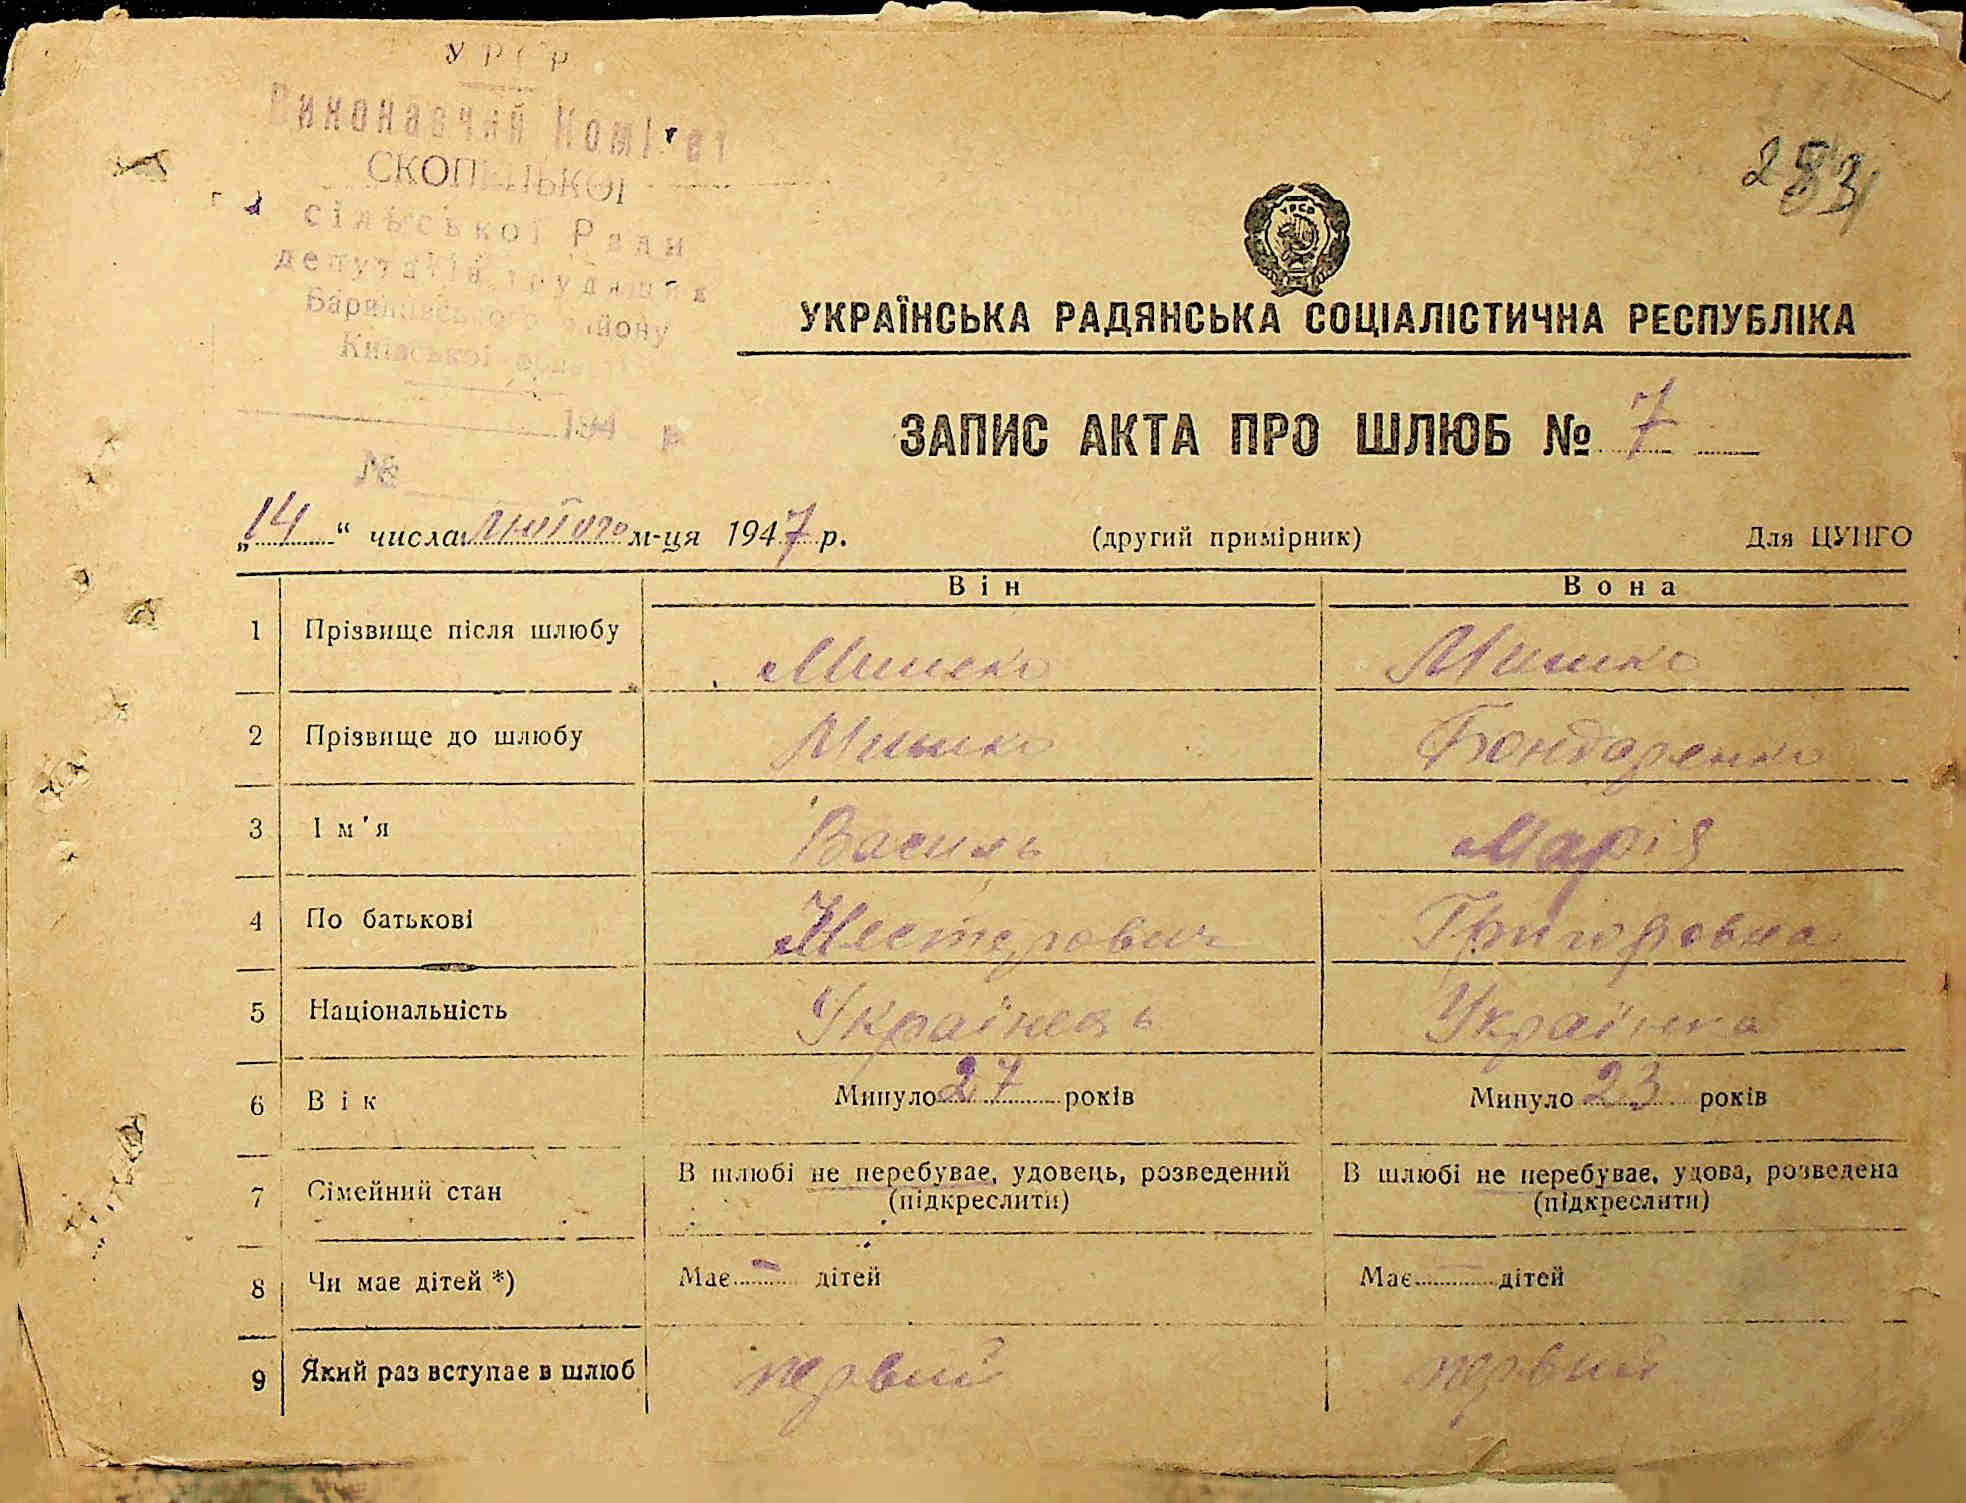 УРСР
Виконавчий Комітет
СКОПЕЦЬКОЇ
сільської Ради
депутатів трудящих
Баришівського району
Київської області
194 р.
№
283
УРСР
УКРАЇНСЬКА РАДЯНСЬКА СОЦІАЛІСТИЧНА РЕСПУБЛІКА
ЗАПИС АКТА ПРО ШЛЮБ № 7
„14“ числа лютого м-ця 1947 р. (другий примірник) Для ЦУНГО
Він Вона
1 Прізвище після шлюбу Мишко Мишко
2 Прізвище до шлюбу Мишко Бондаренко
3 Ім'я Василь Марія
4 По батькові Нестерович Григоровна
5 Національність Українець Українка
6 Вік Минуло 27 років Минуло 23 років
7 Сімейний стан В шлюбі не перебуває, удовець, розведений (підкреслити) В шлюбі не перебуває, удова, розведена (підкреслити)
8 Чи має дітей *) Має – дітей Має – дітей
9 Який раз вступає в шлюб первий первий